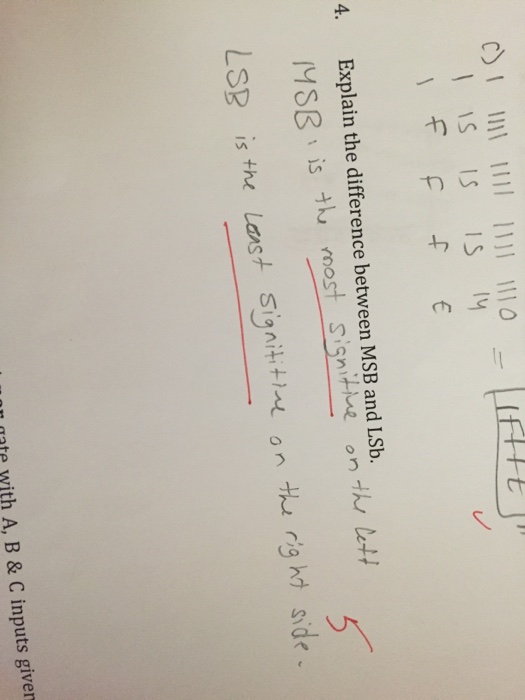 c) 1 1111 1111 1111 1110 = 1FFFE
1 15 15 15 14
1 F F F E
4. Explain the difference between MSB and LSb.
MSB: is the most signitive on the left
5
LSB is the least signititive on the right side.
gate with A, B & C inputs given